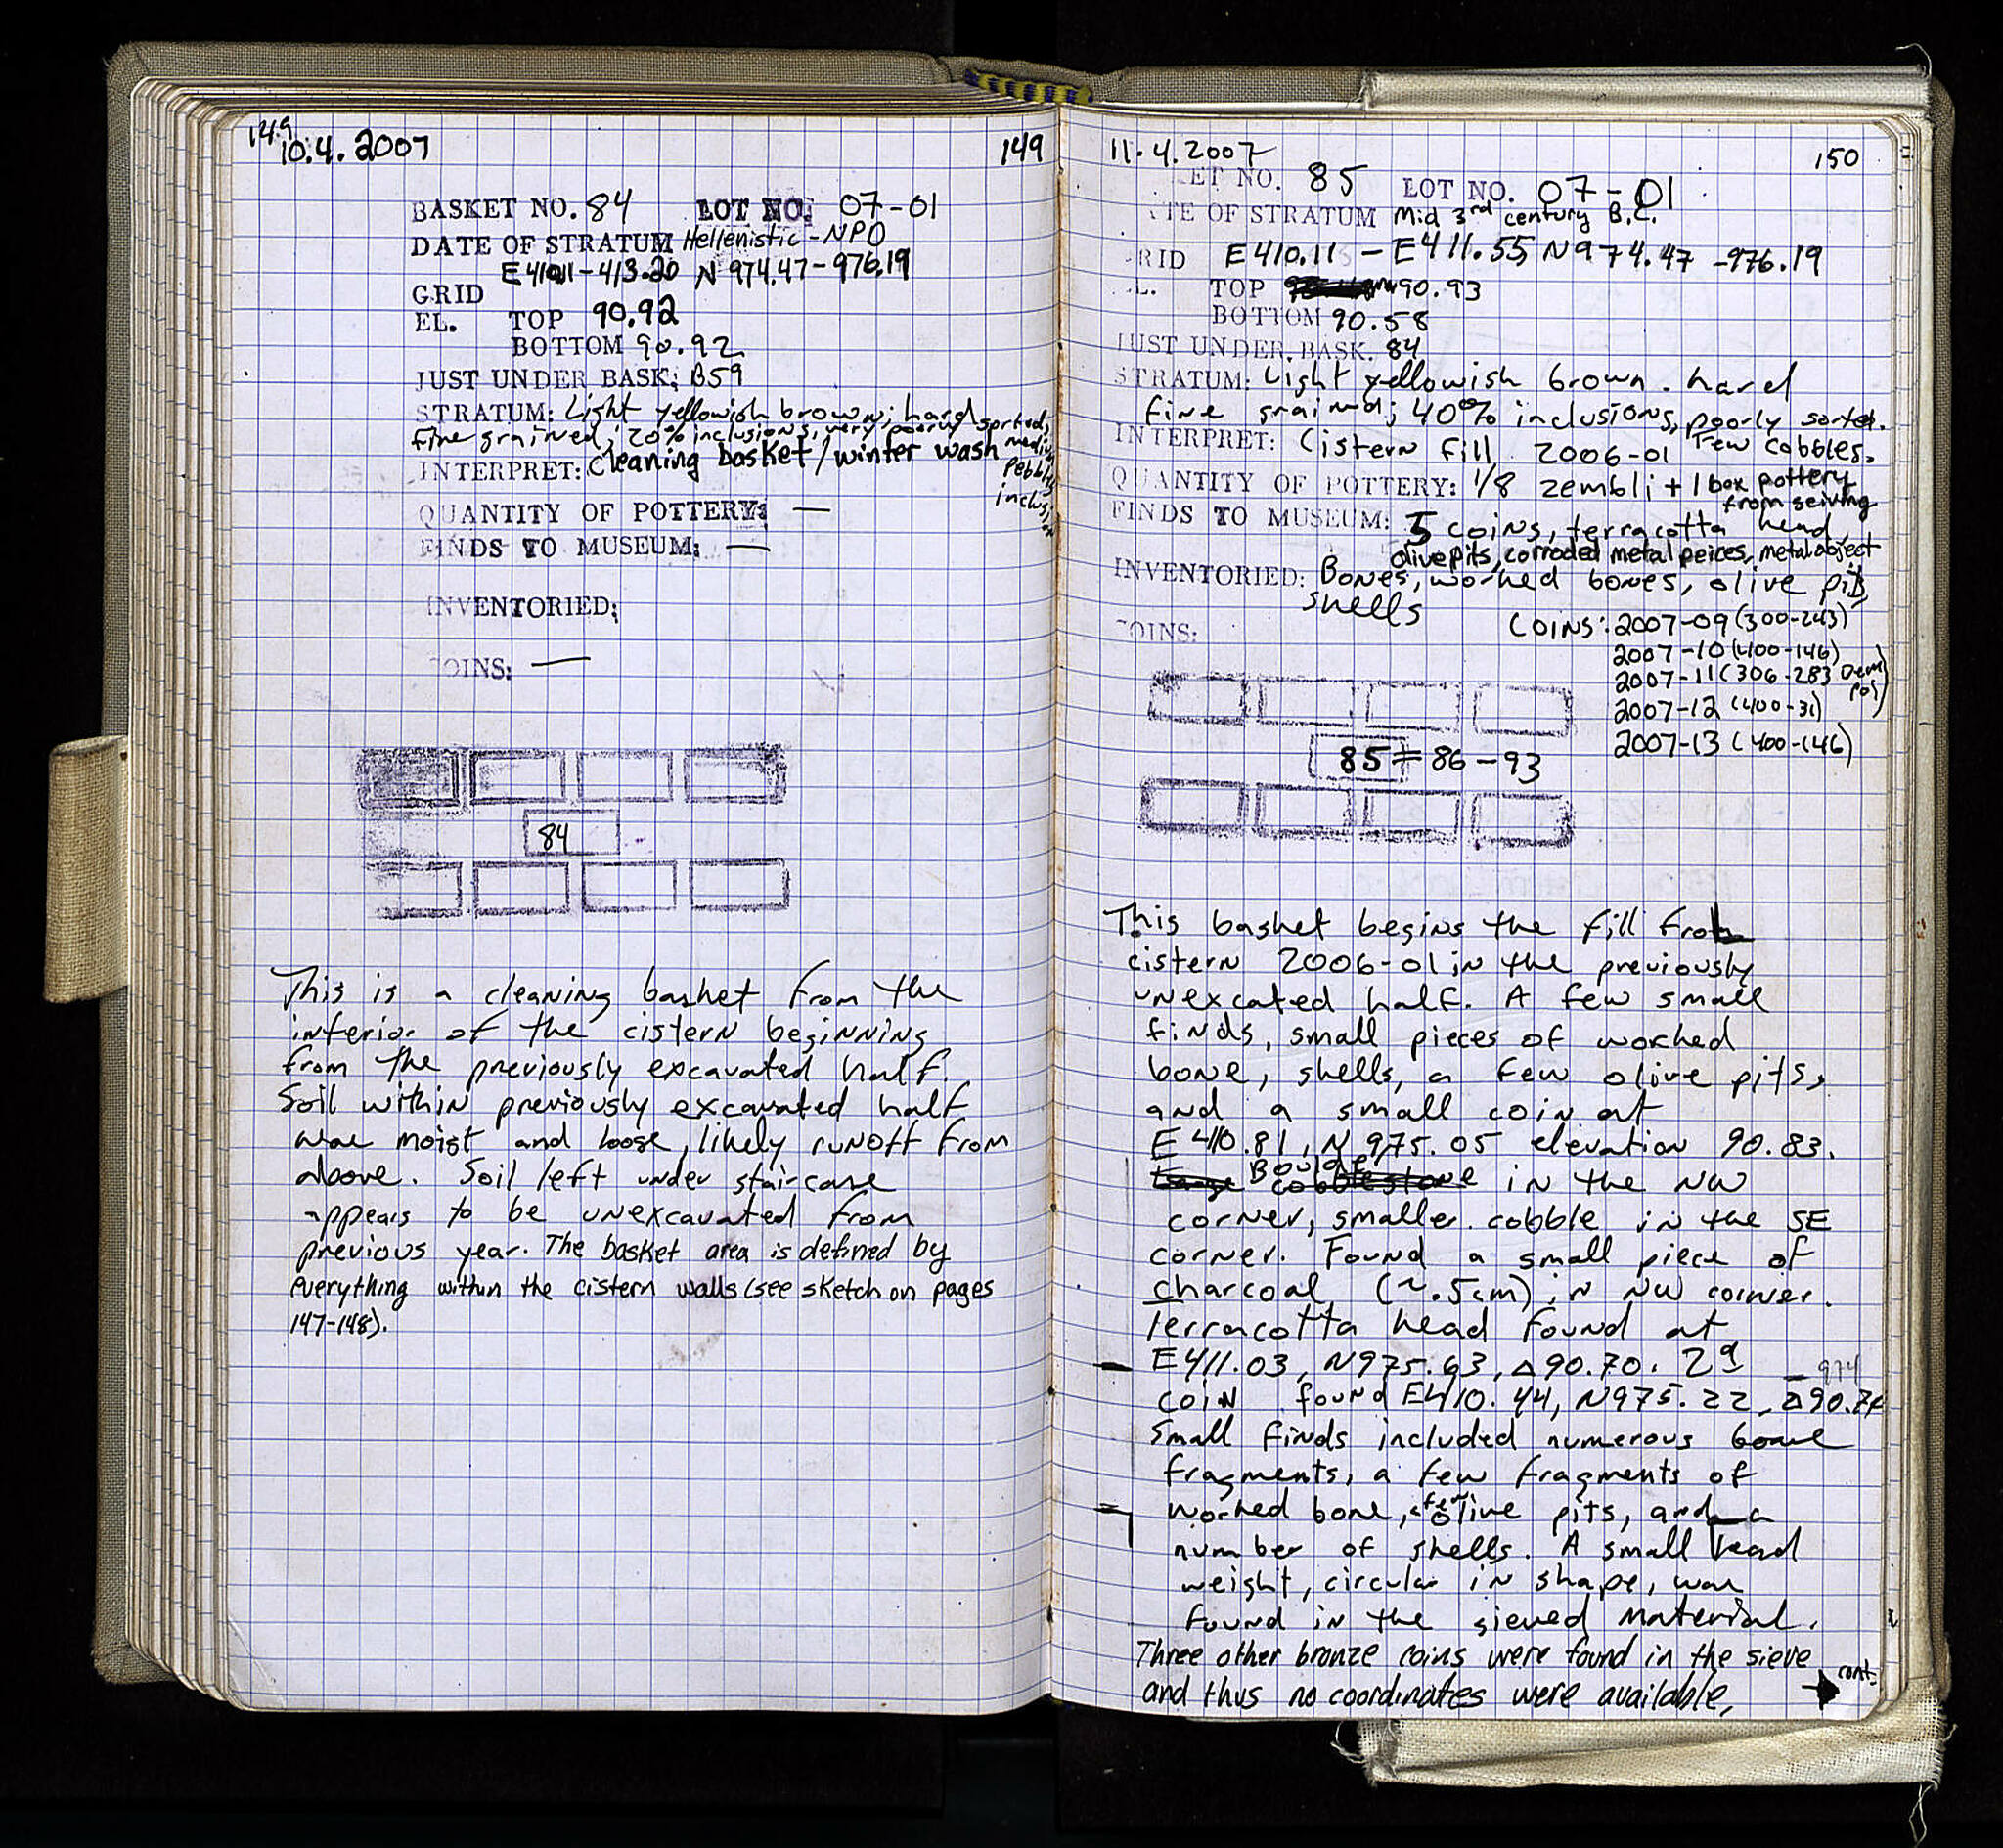 149
10.4.2007
149
BASKET NO. 84 LOT NO. 07-01
DATE OF STRATUM Hellenistic-NPD
E41011-413.20 N 974.47-976.19
GRID
EL. TOP 90.92
BOTTOM 90.92
JUST UNDER BASK: B59
STRATUM: Light yellowish brown; hard
fine grained, 20% inclusions, very poorly sorted,
medium
pebbly
inclusions
INTERPRET: Cleaning basket/winter wash
QUANTITY OF POTTERY: —
FINDS TO MUSEUM: —
INVENTORIED:
OINS: —
84
This is a cleaning basket from the
interior of the cistern beginning
from the previously excavated half.
Soil within previously excavated half
was moist and loose, likely runoff from
above. Soil left under staircase
appears to be unexcavated from
previous year. The basket area is defined by
everything within the cistern walls (see sketch on pages
147-148).
11.4.2007
150
ET NO. 85 LOT NO. 07-01
TE OF STRATUM Mid 3rd century B.C.
RID E410.11 - E411.55 N974.47 -976.19
L. TOP 90.93
BOTTOM 90.58
JUST UNDER BASK. 84
STRATUM: Light yellowish brown. hard
fine grained; 40% inclusions, poorly sorted.
Few cobbles.
INTERPRET: Cistern fill 2006-01
QUANTITY OF POTTERY: 1/8 zembli + 1 box pottery
from seiving
FINDS TO MUSEUM: 5 coins, terracotta head,
olive pits, corroded metal peices, metal object
INVENTORIED: Bones, worked bones, olive pits,
shells
OINS:
COINS: 2007-09 (300-243)
2007-10 (400-146)
2007-11 (306-283 Dem
Pol)
2007-12 (400-31)
2007-13 (400-146)
85 = 86-93
This basket begins the fill from
cistern 2006-01 in the previously
unexcated half. A few small
finds, small pieces of worked
bone, shells, a few olive pits,
and a small coin at
E410.81, N975.05 elevation 90.83.
Boulder
Large cobblestone in the NW
corner, smaller cobble in the SE
corner. Found a small piece of
charcoal (~.5cm) in NW corner.
Terracotta head found at
E411.03, N975.63, Δ90.70. 2d
974
coin found E410.44, N975.22, Δ90.74
Small finds included numerous bone
fragments, a few fragments of
worked bone, a few olive pits, and a
number of shells. A small lead
weight, circular in shape, was
found in the sieved material.
Three other bronze coins were found in the sieve
and thus no coordinates were available,
cont.